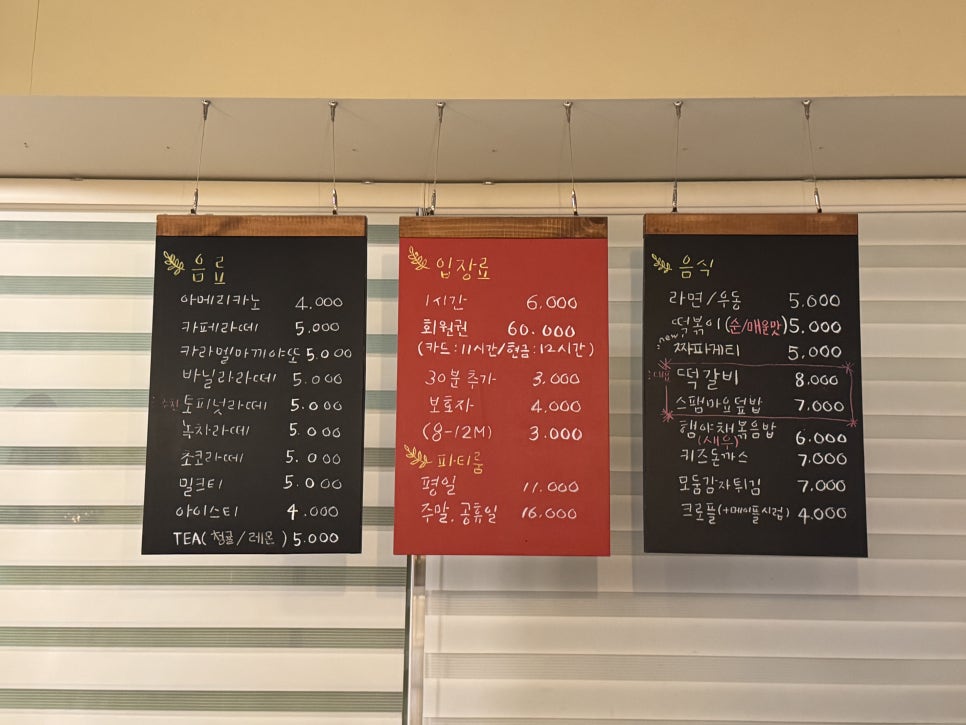 음료
아메리카노 4.000
카페라떼 5.000
카라멜마끼야또 5.000
바닐라라떼 5.000
추천 토피넛라떼 5.000
녹차라떼 5.000
초코라떼 5.000
밀크티 5.000
아이스티 4.000
TEA( /레몬) 5.000
입장료
1시간 6.000
회원권 60.000
(카드:11시간/현금:12시간)
30분 추가 3.000
보호자 4.000
(8-12M) 3.000
파티룸
평일 11.000
주말, 공휴일 16.000
음식
라면/우동 5.000
떡볶이(순/매운맛) 5.000
new 짜파게티 5.000
떡갈비 8.000
스팸마요덮밥 7.000
햄야채볶음밥 6.000
(새우)
키즈돈까스 7.000
모둠감자튀김 7.000
크로플(+메이플시럽) 4.000